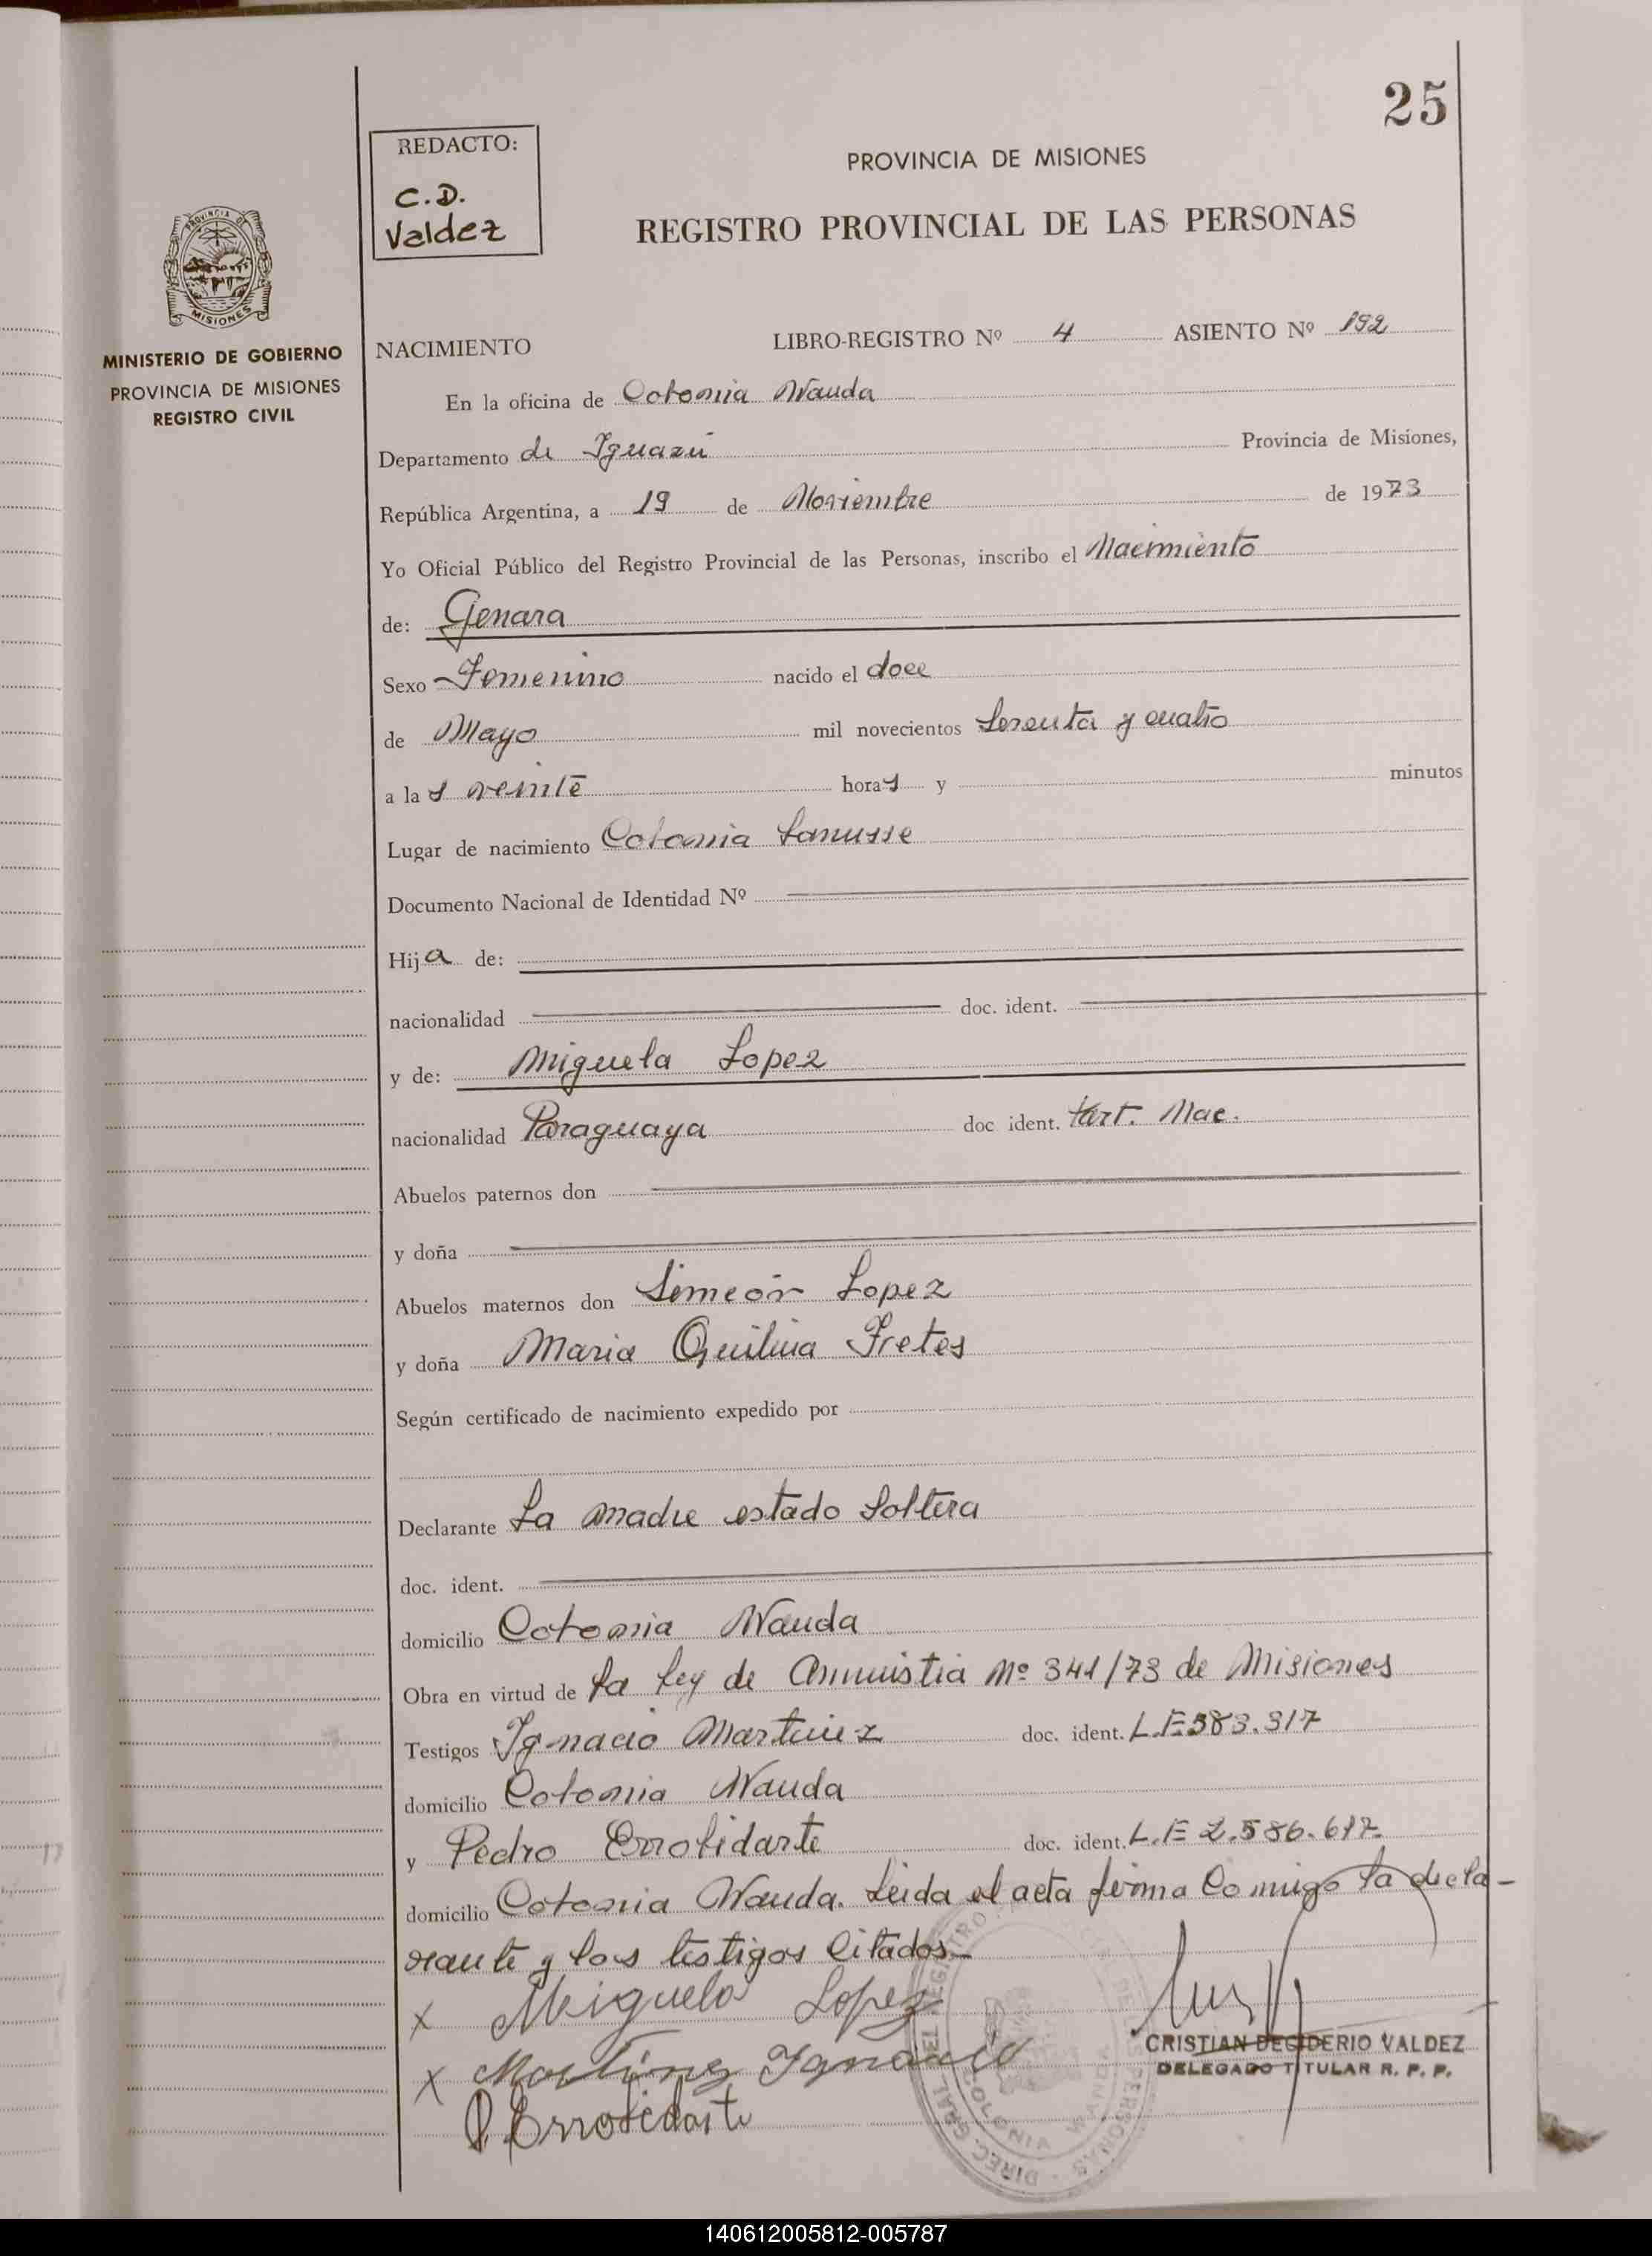 25
REDACTO:
C.D.
Valdez
PROVINCIA DE MISIONES
REGISTRO PROVINCIAL DE LAS PERSONAS
PROVINCIA DE
MISIONES
MINISTERIO DE GOBIERNO
PROVINCIA DE MISIONES
REGISTRO CIVIL
NACIMIENTO LIBRO-REGISTRO Nº 4 ASIENTO Nº 192
En la oficina de Colonia Wanda
Departamento de Iguazú Provincia de Misiones,
República Argentina, a 19 de Noviembre de 1973
Yo Oficial Público del Registro Provincial de las Personas, inscribo el Nacimiento
de: Genara
Sexo Femenino nacido el doce
de Mayo mil novecientos Sesenta y cuatro
a las veinte horas y minutos
Lugar de nacimiento Colonia Lanusse
Documento Nacional de Identidad Nº
Hija de:
nacionalidad doc. ident.
y de: Miguela Lopez
nacionalidad Paraguaya doc ident. Part. Nac.
Abuelos paternos don
y doña
Abuelos maternos don Simeón Lopez
y doña Maria Fretes
Según certificado de nacimiento expedido por
Declarante La madre estado Soltera
doc. ident.
domicilio Colonia Wanda
Obra en virtud de La Ley de Amnistia Nº 341/73 de Misiones
Testigos Ignacio Martinez doc. ident. L.E 383.317
domicilio Colonia Wanda
y Pedro Errolidarte doc. ident. L.E 2.586.617
domicilio Colonia Wanda. Leida el acta firma Comigo la decla-
rante y los testigos Citados
x Miguela Lopez
x Martinez Ignacio
P. Errotidarte
CRISTIAN DECIDERIO VALDEZ
DELEGADO TITULAR R. P. P.
DIREC. GRAL. DEL REGISTRO PERSONAS
COLONIA WANDA
140612005812-005787